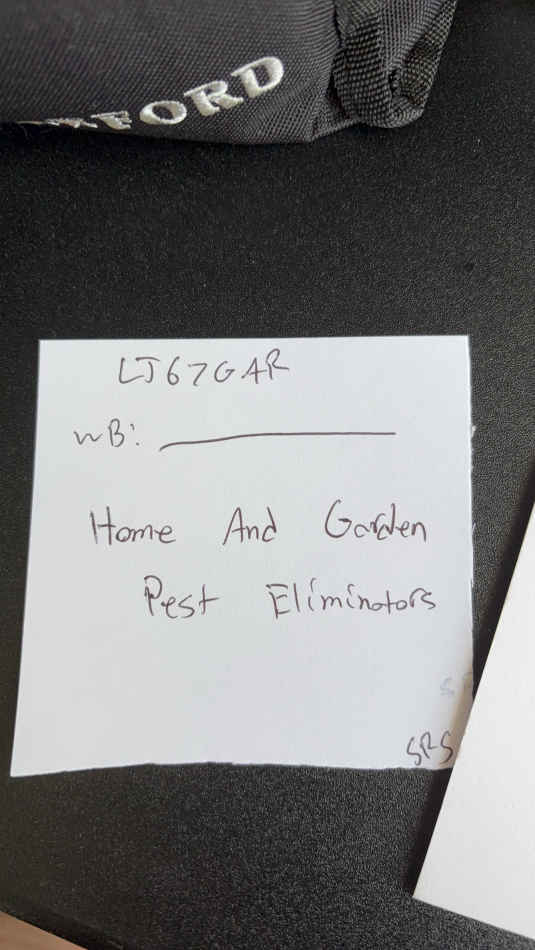 FORD
LJ67GAR
WB:
Home And Garden
Pest Eliminators
SRS